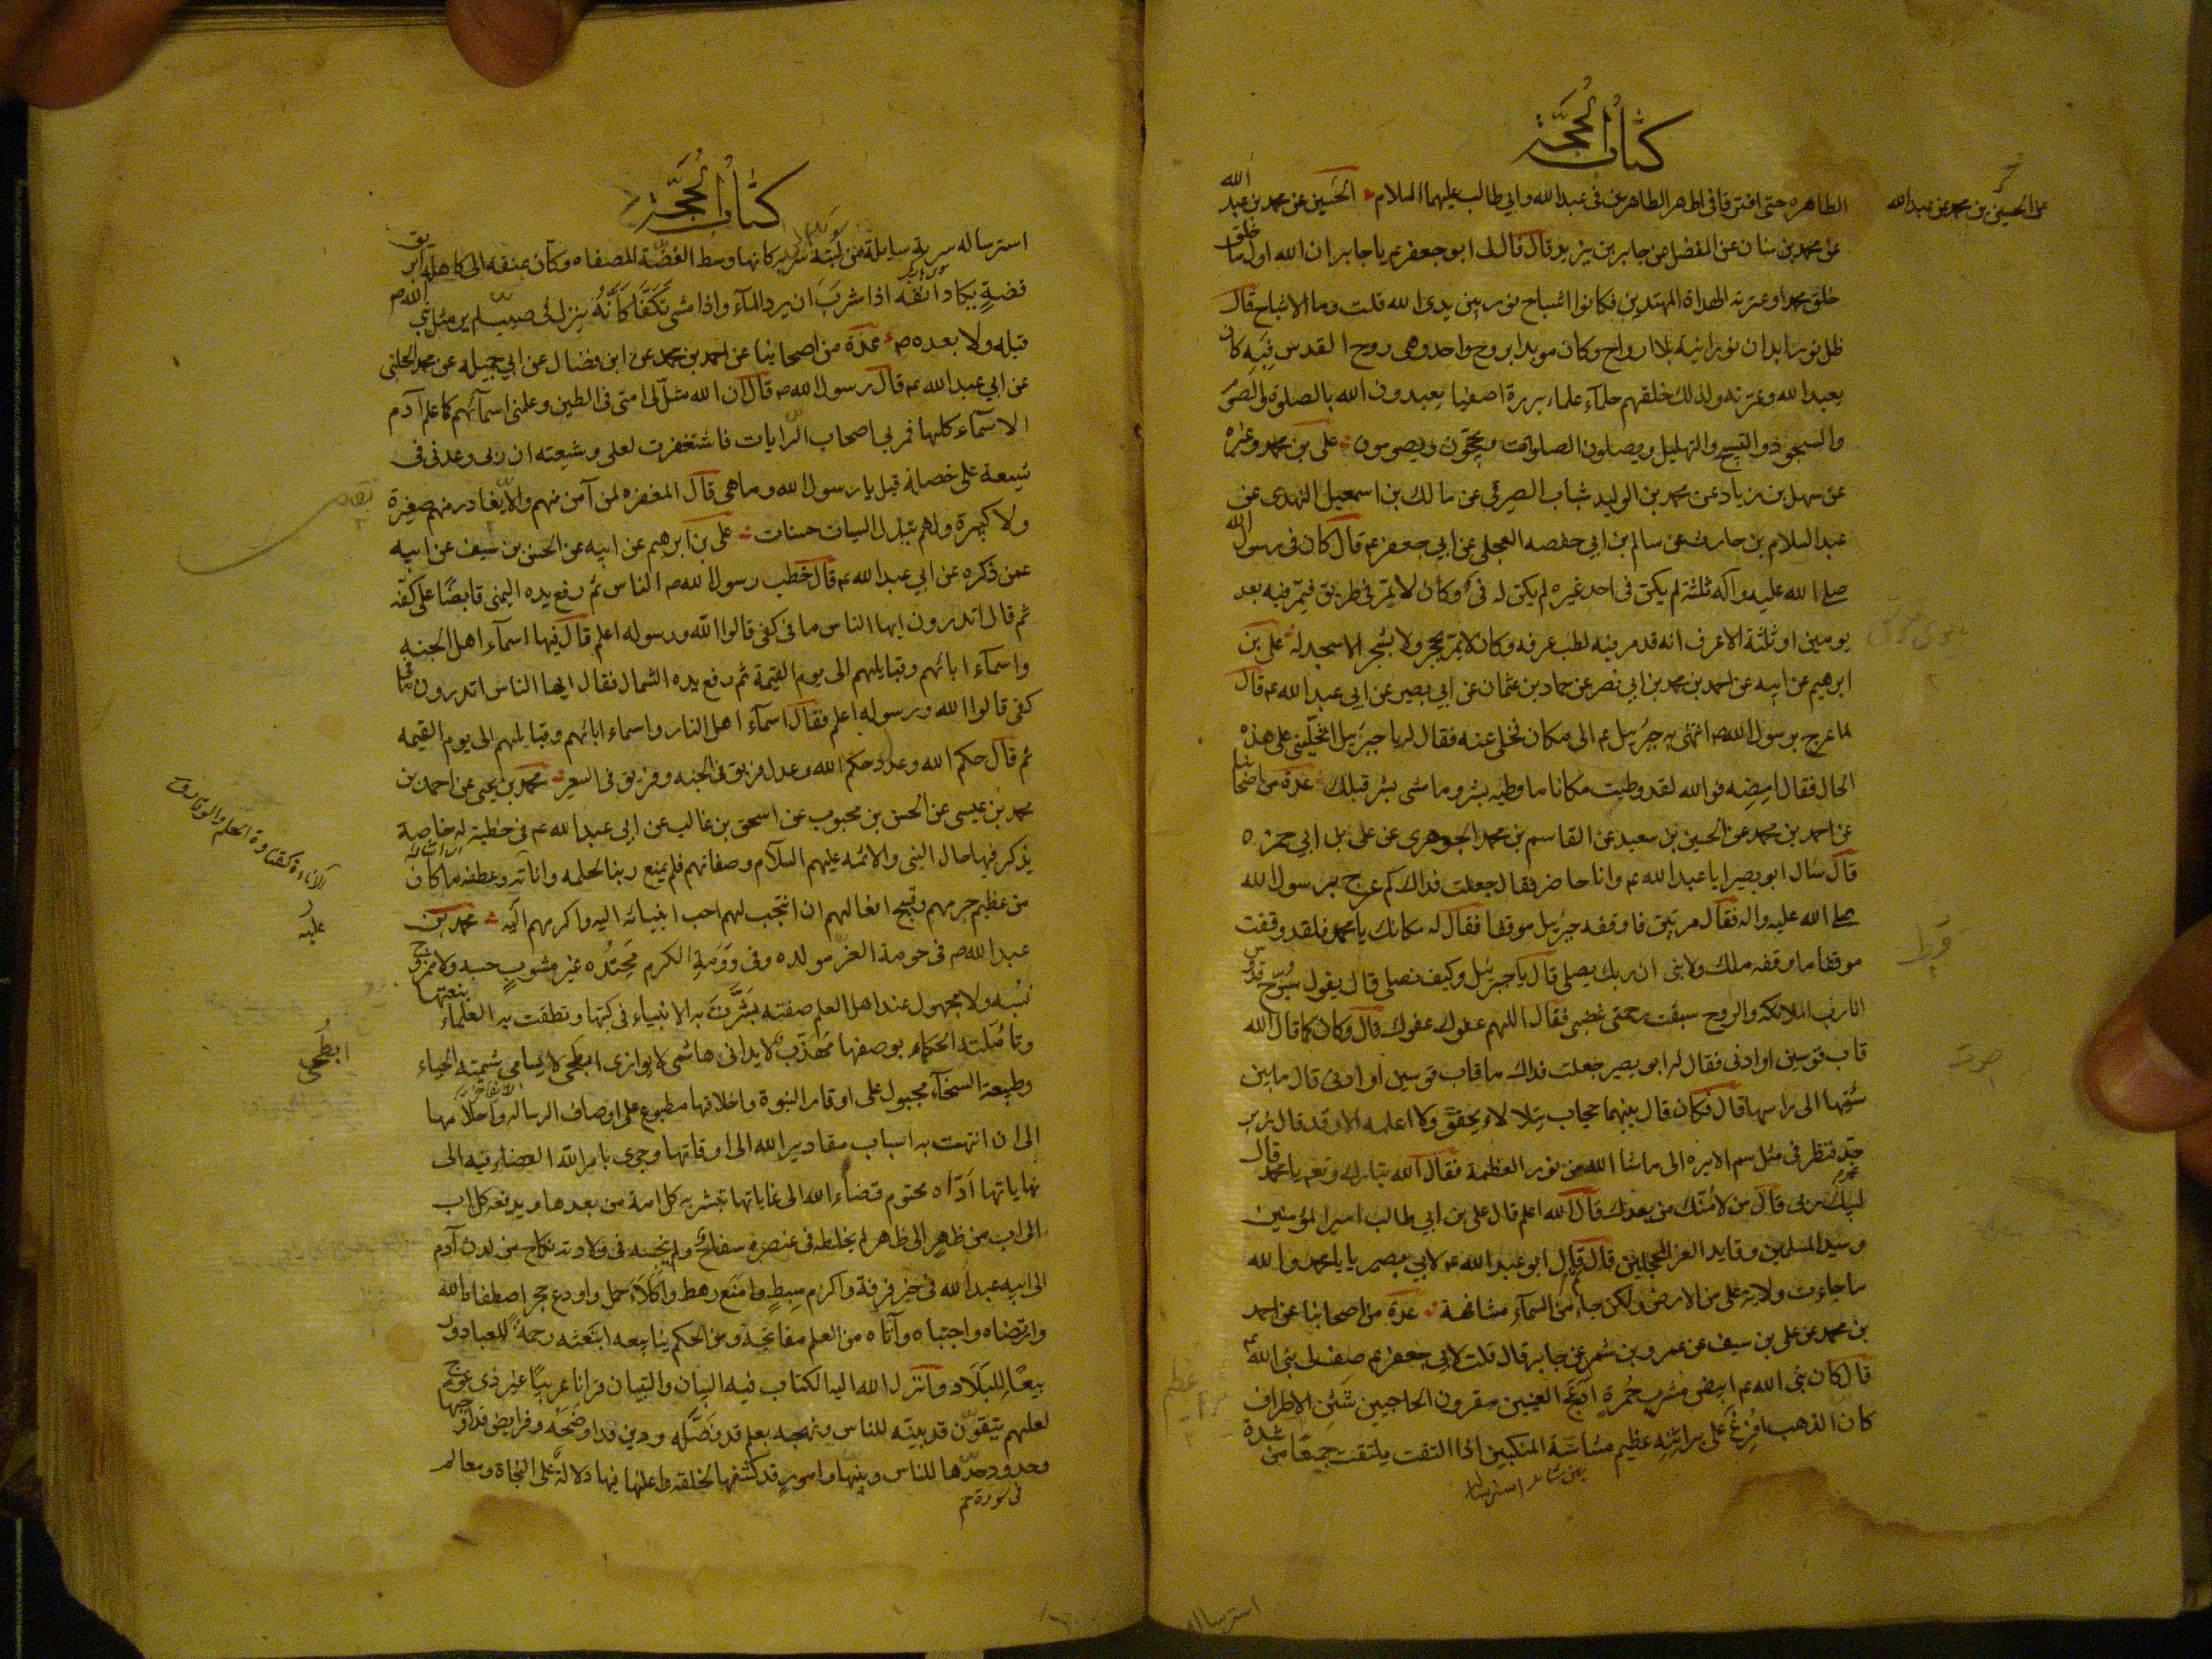 كتاب الحجة
الطاهره حتى افترقا في اطهر الطاهرين في عبد الله وابي طالب عليهما السلام الحسين عن محمد بن عبد الله
على الحسين بن محمد عن عبد الله
عن محمد بن سنان عن المفضل عن جابر بن يزيد قال قال لى ابو جعفر ع يا جابر ان الله اول ما خلق
خلق محمدا وعترته الهداة المهتدين فكانوا اشباح نور بين يدى الله قلت وما الاشباح قال
ظل نور ابدان نورانية بلا ارواح وكان مويدا بروح واحد وهى روح القدس فبه كان
يعبد الله وعترته ولذلك خلقهم حلمآء علماء بررة اصفيا يعبدون الله بالصلوة والصوم
والسجود والتسبيح والتهليل ويصلون الصلوات ويحجّون ويصومون على بن محمد وغيره
عن سهل بن زياد عن محمد بن الوليد شباب الصيرفي عن مالك بن اسمعيل النهدى عن
عبد السلام بن حارث عن سالم بن ابي حفصه العجلى عن ابي جعفر ع قال كان في رسول الله
صلى الله عليه واله ثلثة لم يكن في احد غيره لم يكن له فى وكان لا يمرّ في طريق فيمرّ فيه بعد
يومين او ثلثة الا عرف انه قد مر فيه لطيب عرفه وكان لا يمرّ بحجر ولا بشجر الا سجد له على بن
ابرهيم عن ابيه عن احمد بن محمد بن ابي نصر عن حماد بن عثمان عن ابي بصير عن ابي عبد الله ع قال
لما عرج برسول الله ص انتهى به جبرئيل ع الى مكان فخلى عنه فقال له يا جبرئيل اتخلّينى على هذه
الحال فقال امضه فوالله لقد وطيت مكانا ما وطيه بشر وما مشى بشر قبلك عدة من اصحابنا
عن احمد بن محمد عن الحسين بن سعيد عن القاسم بن محمد الجوهرى عن على بن ابي حمزه
قال سال ابو بصير ابا عبد الله ع وانا حاضر فقال جعلت فداك كم عرج برسول الله
صلى الله عليه واله فقال مرتين فاوقفه جبرئيل موقفا فقال له مكانك يا محمد فلقد وقفت
موقفا ما وقفه ملك ولا نبى ان ربك يصلى قال يا جبرئيل وكيف يصلى قال يقول سبّوح قدوس
انا رب الملائكة والروح سبقت رحمتى غضبى فقال اللهم عفوك عفوك قال وكان كما قال الله
قاب قوسين او ادنى فقال له ابو بصير جعلت فداك ما قاب قوسين او ادنى قال ما بين
سيتها الى راسها قال فكان قال بينهما حجاب يتلالاء يخفق ولا اعلمه الا وقد قال زبرجد
فنظر في مثل سم الابره الى ما شا الله من نور العظمة فقال الله تبارك وتعم يا محمد قال
لبيك ربي قال من لامّتك من بعدك قال الله اعلم قال على بن ابي طالب امير المؤمنين
وسيد المسلمين وقايد الغر المحجلين قال ثم قال ابو عبد الله ع لابي بصير يا با محمد والله
ما جاءت ولاية على من الارض ولكن جاءت من السمآء مشافهة عدة من اصحابنا عن احمد
بن محمد عن على بن سيف عن عمرو بن شمر عن جابر قال قلت لابي جعفر ع صف لى نبى الله ع
قال كان نبى الله ع ابيض مشرب حمرة ادعج العينين مقرون الحاجبين شثن الاطراف
كان الذهب افرغ على براثنه عظيم مشاشة المنكبين اذا التفت يلتفت جميعًا من شدة
استرساله
كتاب الحجة
استرساله سربة سايلة من لبته الى سرته كانها وسط الفضة المصفاه وكان عنقه الى كاهله ابريق
فضة يكاد انفه اذا شرب ان يرد المآء واذا مشى تكفّا كانّه ينزل في صبب لم ير مثل نبى الله ص
قبله ولا بعده ص عدة من اصحابنا عن احمد بن محمد عن ابن فضال عن ابي جميله عن محمد الحلبى
عن ابي عبد الله ع قال رسول الله ص قال ان الله مثّل لى امتى في الطين وعلمنى اسمآئهم كما علم آدم
الاسمآء كلها فمر بي اصحاب الرايات فاستغفرت لعلى وشيعته ان ربى وعدنى في
شيعة على خصلة قيل يا رسول الله وما هى قال المغفره لمن آمن منهم والا يغادر منهم صغيرة
ولا كبيرة ولهم تبدل السيات حسنات على بن ابرهيم عن ابيه عن الحسن بن سيف عن ابيه
عمن ذكره عن ابي عبد الله ع قال خطب رسول الله ص الناس ثم رفع يده اليمنى قابضًا على كفّه
ثم قال اتدرون ايها الناس ما في كفى قالوا الله ورسوله اعلم قال فيها اسمآء اهل الجنه
واسمآء ابائهم وقبايلهم الى يوم القيمة ثم رفع يده الشمال فقال ايها الناس اتدرون ما في
كفى قالوا الله ورسوله اعلم فقال اسمآء اهل النار واسماء ابائهم وقبايلهم الى يوم القيمه
ثم قال حكم الله وعدل حكم الله وعدل فريق في الجنه وفريق في السعير محمد بن يحيى عن احمد بن
محمد بن عيسى عن الحسن بن محبوب عن اسحق بن غالب عن ابي عبد الله ع في خطبة له خاصة
يذكر فيها حال النبى والائمه عليهم السلام وصفاتهم فلم يمنع ربنا لحلمه واناته وعطفه ما كان
من عظيم جرمهم وقبيح افعالهم ان انتجب لهم احب انبيائه اليه واكرمهم اليه محمد بن
عليه
عبد الله ص في حومة العزّ مولده وفي دومة الكرم محتده غير مشوب حسبه ولا ممزوج
نسبه ولا مجهول عند اهل العلم صفته بشرت به الانبياء في كتبها ونطقت به العلماء بنعتها
وتاملته الحكماء بوصفها مهذّب لا يدانى هاشمى لا يوازى ابطحى لا يسامى شيمته الحياء
ابطحى
وطبيعته السخآء مجبول على اوقار النبوة واخلاقها مطبوع على اوصاف الرساله واحلامها
الى ان انتهت به اسباب مقادير الله الى اوقاتها وجرى بامر الله القضاء فيه الى
نهاياتها ادّاه محتوم قضاء الله الى غاياتها تبشر به كل امة من بعدها ويدفعه كل اب
الى اب من ظهر الى ظهر لم يخلطه في عنصره سفاح ولم ينجسه في ولادته نكاح من لدن آدم
الى ابيه عبد الله في خير فرقة واكرم سبط وامنع رهط واكلاء حمل واودع حجر اصطفاه الله
وارتضاه واجتباه وآتاه من العلم مفاتيحه ومن الحكم ينابيعه ابتعثه رحمة للعباد ور
بيعًا للبلاد وانزل الله اليه الكتاب فيه البيان والتبيان قرانا عربيًا غير ذى عوج
لعلهم يتقون قد بينه للناس ونهجه بعلم قد فصّله ودين قد اوضحه وفرايض قد اوجبها
وحدود حدّها للناس وبينها وامور قد كشفها لخلقه واعلنها فيها دلالة على النجاة ومعالم